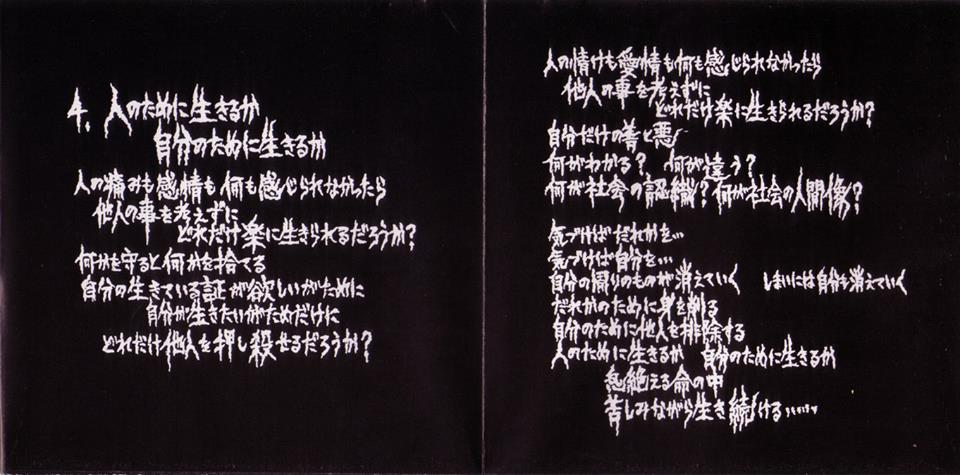 4. 人のために生きるか
自分のために生きるか
人の痛みも感情も何も感じられなかったら
他人の事を考えずに
どれだけ楽に生きられるだろうか?
何かを守ると何かを捨てる
自分の生きている証が欲しいがために
自分が生きたいがためだけに
どれだけ他人を押し殺せるだろうか?
人の情けも愛情も何も感じられなかったら
他人の事を考えずに
どれだけ楽に生きられるだろうか?
自分だけの善と悪
何がわかる? 何が違う?
何が社会の認識? 何が社会の人間像?
気づけばだれかを…
気づけば自分を…
自分の周りのものが消えていく しまいには自分も消えていく
だれかのために身を削る
自分のために他人を排除する
人のために生きるか 自分のために生きるか
息絶える命の中
苦しみながら生き続ける……